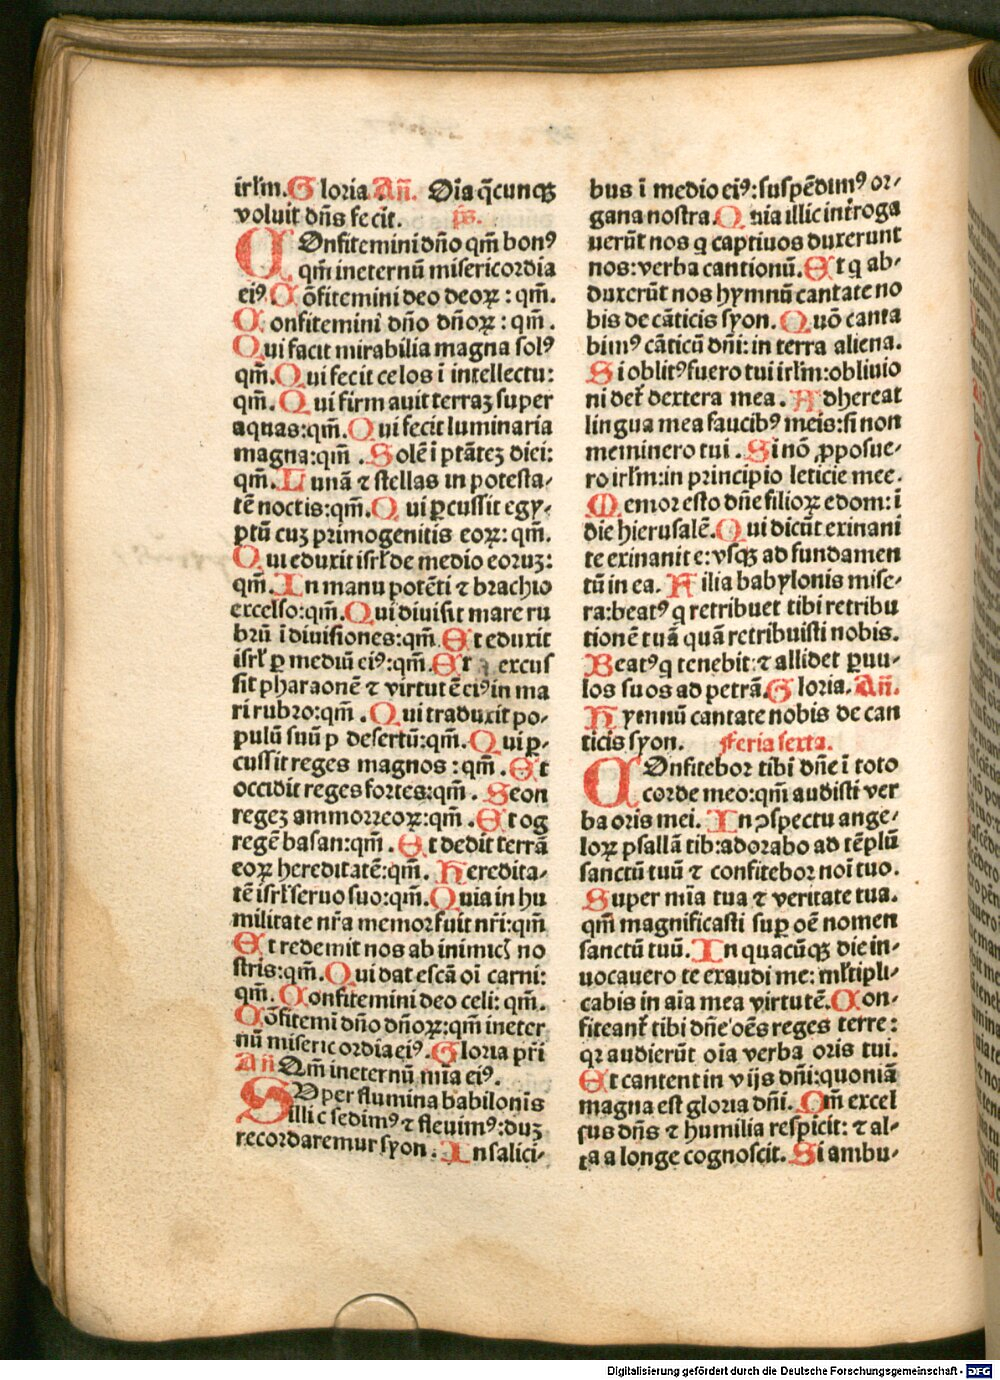 irl̄m. Gloria Añ. Oīa q̄cunqꝫ
voluit dn̄s fecit. ps.
COnfitemini dn̄o qm̄ bonꝰ
qm̄ in eternū misericordia
eiꝰ. Cōfitemini deo deoꝝ : qm̄.
Confitemini dn̄o dn̄oꝝ : qm̄.
Qui facit mirabilia magna solꝰ
qm̄. Qui fecit celos ī intellectu:
qm̄. Qui firmauit terraꝫ super
aquas: qm̄. Qui fecit luminaria
magna: qm̄ . Solē ī ptāteꝫ diei:
qm̄. Lunā ⁊ stellas in potesta⸗
tē noctis: qm̄. Qui ꝑcussit egy⸗
ptū cuꝫ primogenitis eoꝝ: qm̄.
Qui eduxit isrl̄ de medio eoruꝫ:
qm̄. In manu potēti ⁊ brachio
excelso: qm̄. Qui diuisit mare ru
brū ī diuisiones: qm̄ Et eduxit
isrl̄ ꝑ mediū eiꝰ: qm̄. Et excus
sit pharaonē ⁊ virtutē eiꝰ in ma
ri rubro: qm̄ . Qui traduxit po⸗
pulū suū p desertū: qm̄. Qui ꝑ⸗
cussit reges magnos : qm̄ . Et
occidit reges fortes: qm̄ . Seon
regeꝫ ammorreoꝝ: qm̄ . Et og
regē basan: qm̄ . Et dedit terrā
eoꝝ hereditatē: qm̄. Heredita⸗
tē isrl̄ seruo suo: qm̄. Quia in hu
militate nr̄a memor fuit nr̄i: qm̄
Et redemit nos ab inimicꝭ no
stris: qm̄. Qui dat escā oī carni:
qm̄. Confitemini deo celi: qm̄.
Cōfitemī dn̄o dn̄oꝝ: qm̄ in eter
nū misericordia eiꝰ. Gloria pr̄i
Añ Qm̄ in eternū mīa eiꝰ.
SUper flumina babilonis
illic sedimꝰ ⁊ fleuimꝰ: duꝫ
recordaremur syon . In salici⸗
bus ī medio eiꝰ: suspēdimꝰ or⸗
gana nostra. Quia illic introga
uerūt nos q captiuos duxerunt
nos: verba cantionū. Et q ab⸗
duxerūt nos hymnū cantate no
bis de cāticis syon. Quō canta
bimꝰ cāticū dn̄i: in terra aliena.
Si oblitꝰ fuero tui irl̄m: obliuio
ni det̄ dextera mea . Adhereat
lingua mea faucibꝰ meis: si non
meminero tui . Si nō ꝓposue⸗
ro irl̄m: in principio leticie mee.
Memor esto dn̄e filioꝝ edom: ī
die hierusalē. Qui dicūt exinani
te exinanite: vsqꝫ ad fundamen
tū in ea. Filia babylonis mise⸗
ra: beatꝰ q retribuet tibi retribu
tionē tuā quā retribuisti nobis.
Beatꝰ q tenebit: ⁊ allidet ꝑuu⸗
los suos ad petrā. Gloria. Añ.
Hymnū cantate nobis de can
ticis syon. Feria sexta.
COnfitebor tibi dn̄e ī toto
corde meo: qm̄ audisti ver
ba oris mei. In ꝯspectu ange⸗
loꝝ psallā tib: adorabo ad tēplū
sanctū tuū ⁊ confitebor noī tuo.
Super mīa tua ⁊ veritate tua.
qm̄ magnificasti suꝑ oē nomen
sanctū tuū. In quacūqꝫ die in⸗
uocauero te exaudi me: ml̄tipli⸗
cabis in aīa mea virtutē. Con⸗
fiteant̄ tibi dn̄e oēs reges terre:
qꝛ audierūt oīa verba oris tui.
Et cantent in vijs dn̄i: quoniā
magna est gloria dn̄i. Qm̄ excel
sus dn̄s ⁊ humilia respicit: ⁊ al⸗
ta a longe cognoscit. Si ambu⸗
Digitalisierung gefördert durch die Deutsche Forschungsgemeinschaft - DFG